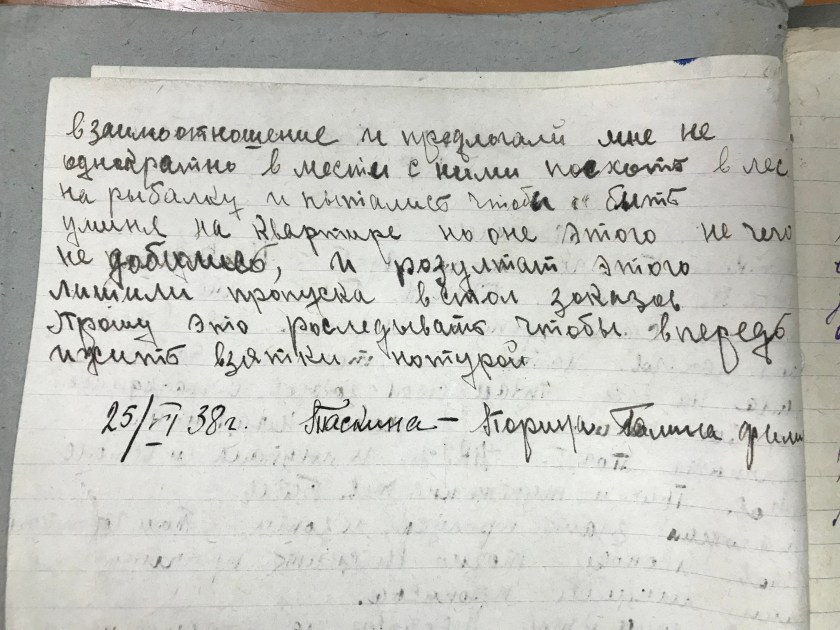 взаимоотношение и предлогали мне не
однократно в месте с ними поехоть в лес
на рыбалку и пытались чтобы быть
уминя на квартире но оне этого не чего
не добились, и розултат этого
лишили пропуска в стол заказов
Прошу это роследывать чтобы вперёдь
изжить взятки нотурой
25/VI 38 г. Паскина — Галина